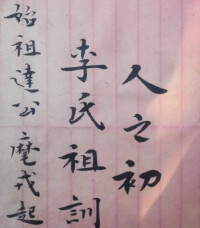 人之初
李氏祖訓
始祖達公麾戎起